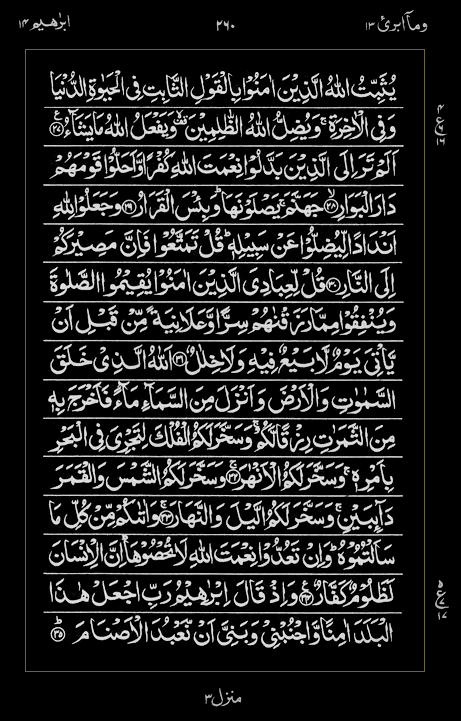 ابرٰهيم ١٤
٢٦٠
ومآ ابرئ ١٣
يُثَبِّتُ اللّٰهُ الَّذِيْنَ اٰمَنُوْا بِالْقَوْلِ الثَّابِتِ فِى الْحَيٰوةِ الدُّنْيَا
وَفِى الْاٰخِرَةِ ۚ وَيُضِلُّ اللّٰهُ الظّٰلِمِيْنَ ۙ وَيَفْعَلُ اللّٰهُ مَا يَشَآءُ ﴿٢٧﴾
اَلَمْ تَرَ اِلَى الَّذِيْنَ بَدَّلُوْا نِعْمَتَ اللّٰهِ كُفْرًا وَّاَحَلُّوْا قَوْمَهُمْ
دَارَ الْبَوَارِ ﴿٢٨﴾ جَهَنَّمَ ۚ يَصْلَوْنَهَا ؕ وَبِئْسَ الْقَرَارُ ﴿٢٩﴾ وَجَعَلُوْا لِلّٰهِ
اَنْدَادًا لِّيُضِلُّوْا عَنْ سَبِيْلِهٖ ؕ قُلْ تَمَتَّعُوْا فَاِنَّ مَصِيْرَكُمْ
اِلَى النَّارِ ﴿٣٠﴾ قُلْ لِّعِبَادِىَ الَّذِيْنَ اٰمَنُوْا يُقِيْمُوا الصَّلٰوةَ
وَيُنْفِقُوْا مِمَّا رَزَقْنٰهُمْ سِرًّا وَّعَلَانِيَةً مِّنْ قَبْلِ اَنْ
يَّاْتِىَ يَوْمٌ لَّا بَيْعٌ فِيْهِ وَلَا خِلٰلٌ ﴿٣١﴾ اَللّٰهُ الَّذِىْ خَلَقَ
السَّمٰوٰتِ وَالْاَرْضَ وَاَنْزَلَ مِنَ السَّمَآءِ مَآءً فَاَخْرَجَ بِهٖ
مِنَ الثَّمَرٰتِ رِزْقًا لَّكُمْ ۚ وَسَخَّرَ لَكُمُ الْفُلْكَ لِتَجْرِىَ فِى الْبَحْرِ
بِاَمْرِهٖ ۚ وَسَخَّرَ لَكُمُ الْاَنْهٰرَ ﴿٣٢﴾ وَسَخَّرَ لَكُمُ الشَّمْسَ وَالْقَمَرَ
دَآئِبَيْنِ ۚ وَسَخَّرَ لَكُمُ الَّيْلَ وَالنَّهَارَ ﴿٣٣﴾ وَاٰتٰىكُمْ مِّنْ كُلِّ مَا
سَاَلْتُمُوْهُ ؕ وَاِنْ تَعُدُّوْا نِعْمَتَ اللّٰهِ لَا تُحْصُوْهَا ؕ اِنَّ الْاِنْسَانَ
لَظَلُوْمٌ كَفَّارٌ ﴿٣٤﴾ وَاِذْ قَالَ اِبْرٰهِيْمُ رَبِّ اجْعَلْ هٰذَا
الْبَلَدَ اٰمِنًا وَّاجْنُبْنِىْ وَبَنِىَّ اَنْ نَّعْبُدَ الْاَصْنَامَ ﴿٣٥﴾
منزل ٣